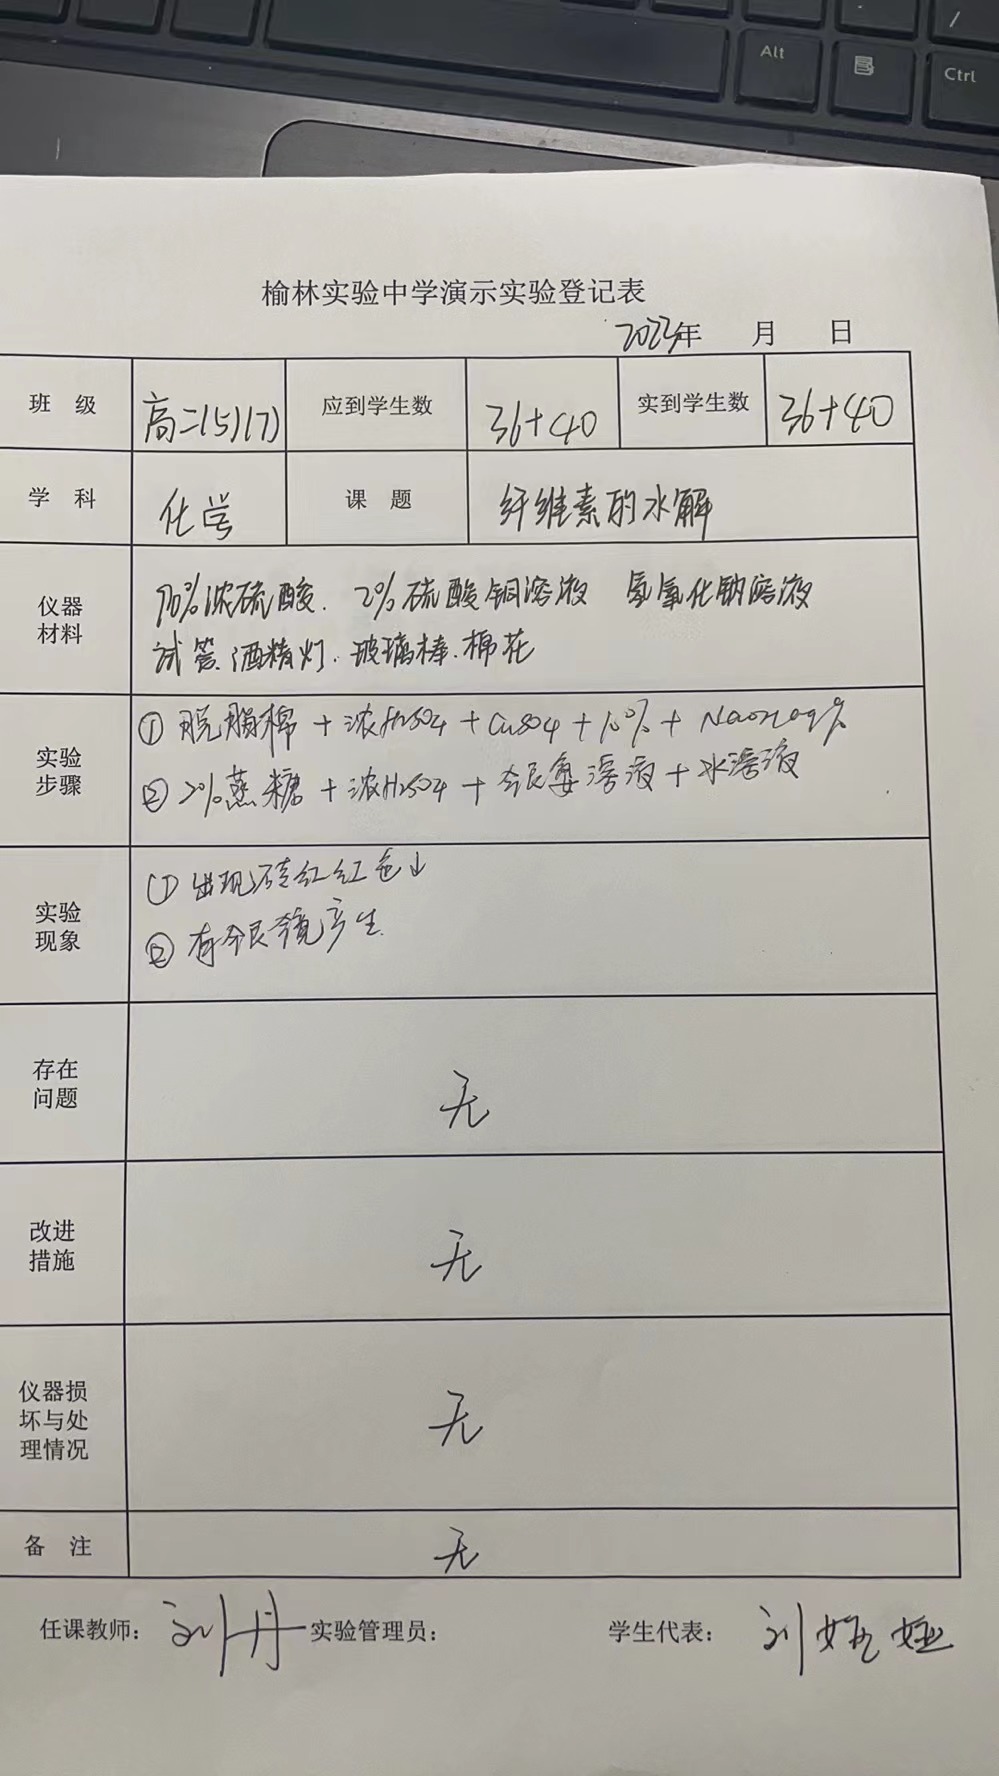 Alt
Ctrl
/
榆林实验中学演示实验登记表
2023年 月 日
班 级 高二(5)(7) 应到学生数 36+40 实到学生数 36+40
学 科 化学 课 题 纤维素的水解
仪器材料 90%浓硫酸. 2%硫酸铜溶液 氢氧化钠溶液
试管.酒精灯.玻璃棒.棉花
实验步骤 ① 脱脂棉+浓H2SO4+CuSO4+10%+NaOH
② 2%蔗糖+浓H2SO4+银氨溶液+水溶液
实验现象 ① 出现砖红红色↓
② 有银镜产生.
存在问题 无
改进措施 无
仪器损坏与处理情况 无
备 注 无
任课教师: 刘丹 实验管理员: 学生代表: 刘